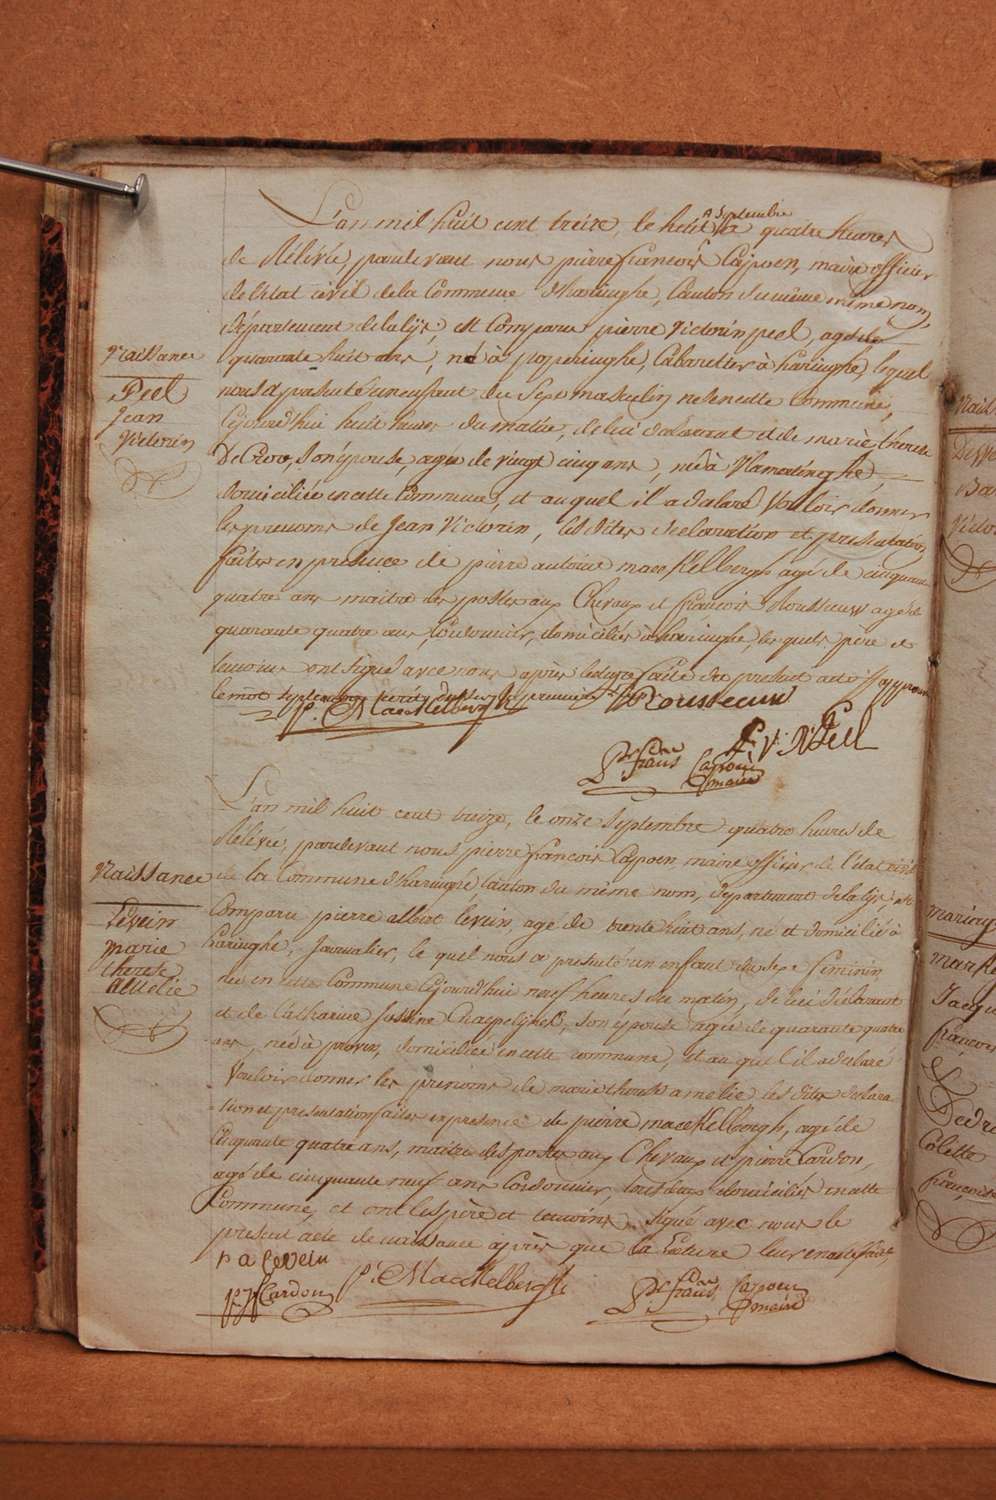 L'an mil huit cent treize, le huit septembre quatre heures
de Rélévée, pardevant nous pierre françois Capoen, maire officier
de l'état civil de la Commune d'haringhe, Canton du même même nom,
département de la lijs, est Comparu pierre Victorin peel, agé de
quarante huit ans, né à poperinghe, Cabarettier à haringhe, lequel
nous a presenté un enfant du Sexe masculin né en cette Commune,
Cejourd'hui huit heures du matin, de lui déclarant et de marie therese
DeCroo, son épouse, agée de vingt cinq ans, née à Vlamertinghe
domiciliée en cette Commune, et au quel il a déclaré Vouloir donner
les prenoms de Jean Victorin, les dites declaration et presentation
faites en presence de pierre antoine maeckelbergh agé de cinquante
quatre ans maitre des postes aux Chevaux et françois Rousseeuw agé de
quarante quatre ans, Cordonnier, domiciliés à haringhe, les quels père et
temoins ont signé avec nous après lecture faite du present acte
le mot septembre
P. Maeckelbergh Rousseeuw
P. V. Peel
Pr frans Capoen
maire
Naissance
Peel
Jean
Victorin
L'an mil huit cent treize, le onze Septembre quatre heures de
Rélévée, pardevant nous pierre françois Capoen, maire officier de l'état civil
de la Commune d'haringhe Canton du même nom, département de la lijs est
Comparu pierre albert Levein, agé de trente huit ans, né et domicilié à
haringhe, Journalier, le quel nous a presenté un enfant du Sexe feminin
né en cette Commune Cejourd'hui neuf heures du matin, de lui déclarant
et de Catharine son épouse agée de quarante quatre
ans, née à proven, domiciliée en cette commune, et au quel il a declaré
Vouloir donner les prenoms de marie therese amelie les dites declara
tion et presentation faites en presence de pierre maeckelbergh, agé de
Cinquante quatre ans, maitre des postes aux Chevaux et pierre Cardon,
agé de cinquante neuf ans Cordonnier, tous deux domiciliés en cette
Commune, et ont les père et temoins signé avec nous le
present acte de naissance après que la Lecture leur en a été faite
p a Levein
Cardon P. Maeckelbergh Pr frans Capoen
maire
Naissance
Levein
Marie
Therese
Amelie
Colette